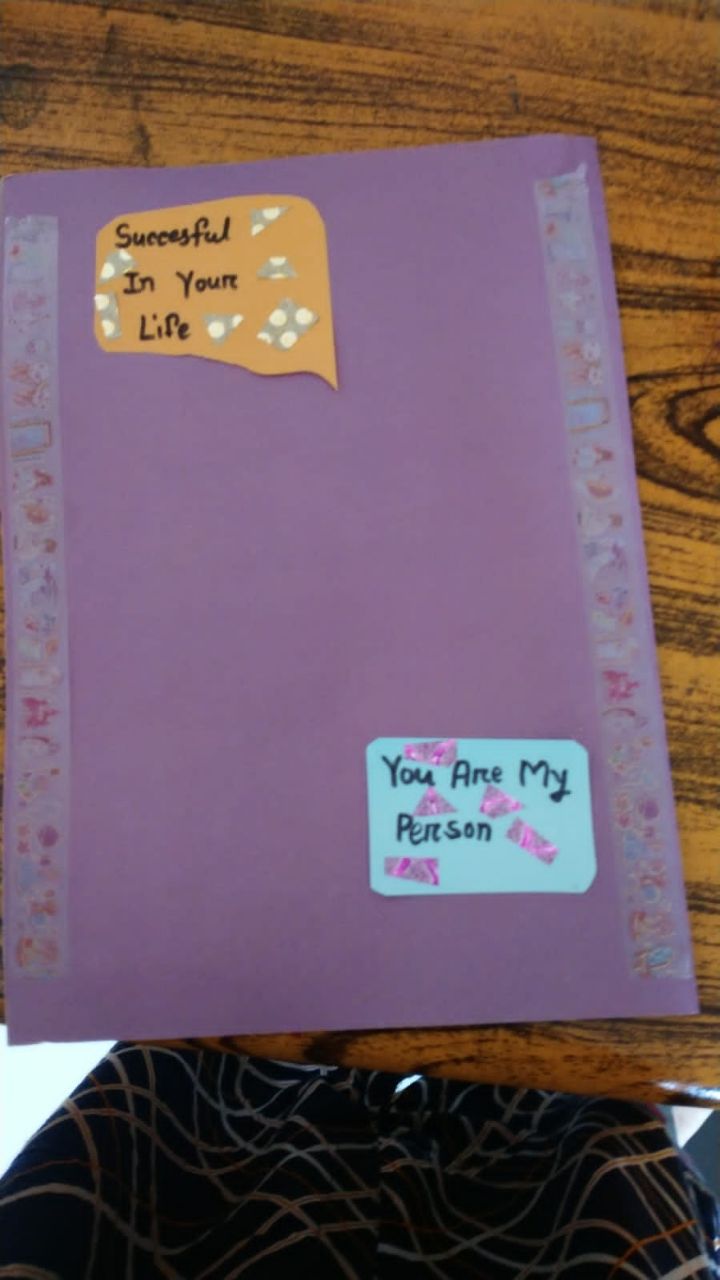 Succesful
In Your
Life
You Are My
Person